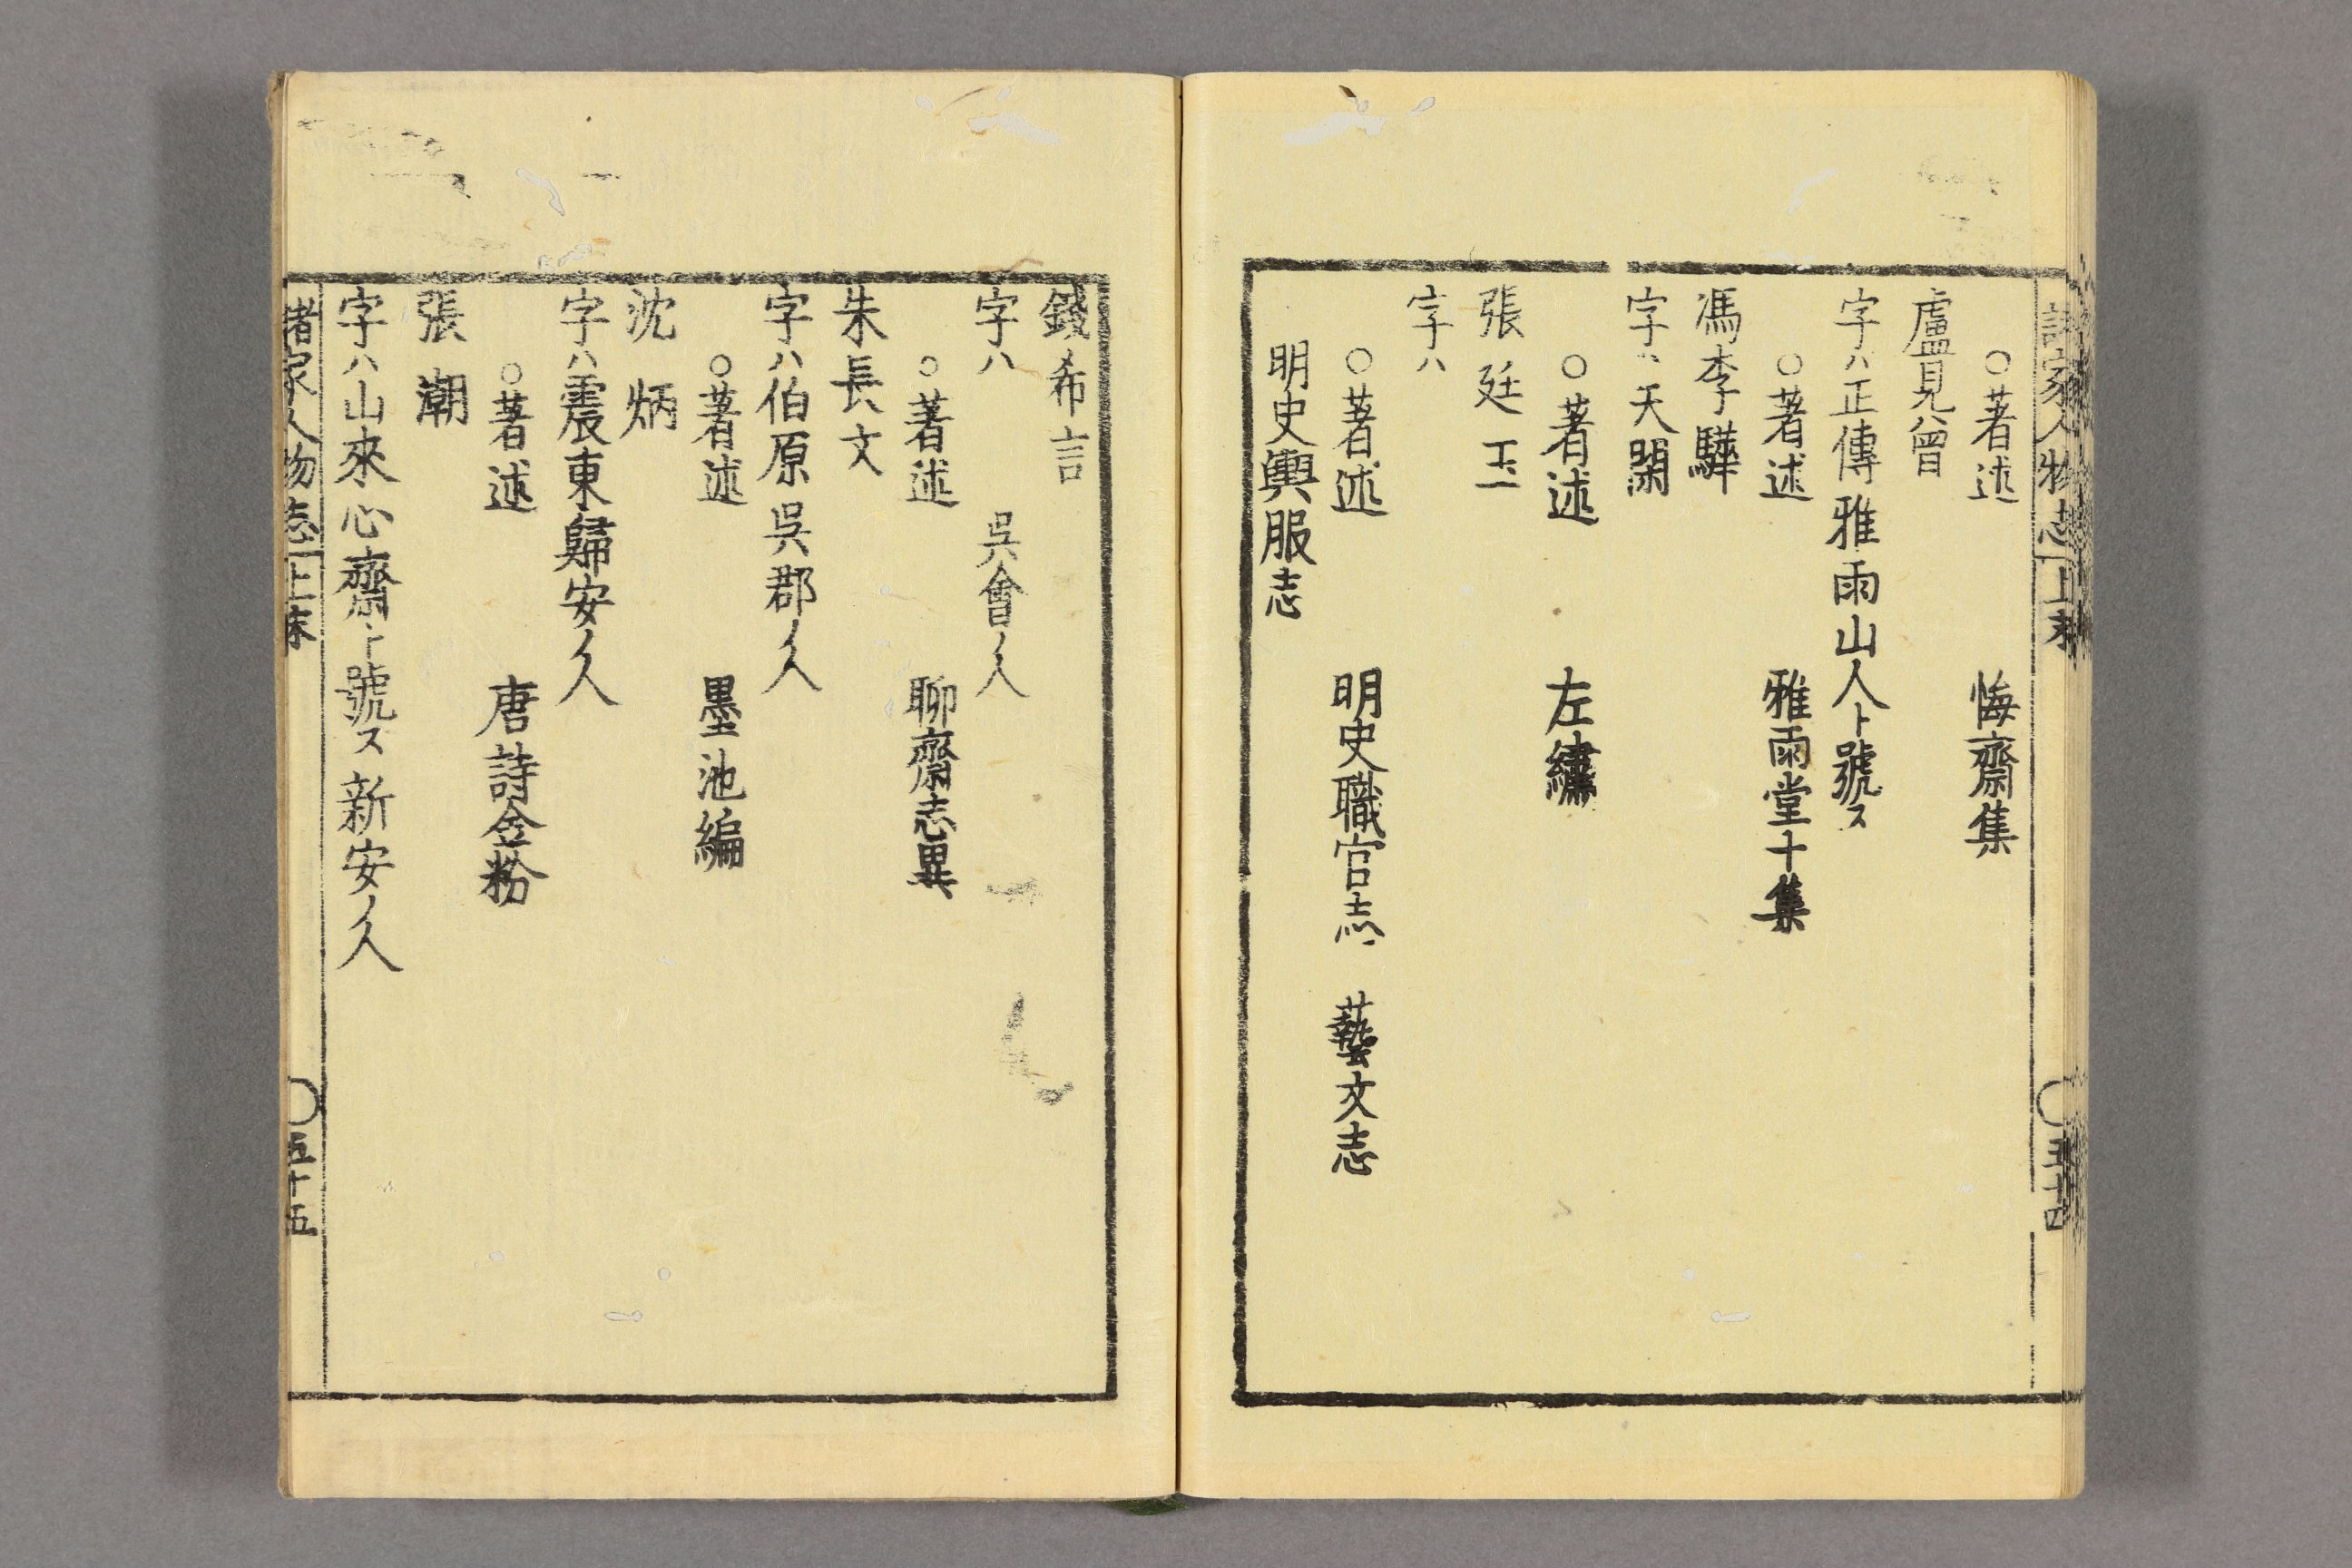 諸家人物志 上末 〇五十四
〇著述 悔齋集
盧見曾
字ハ正傳雅雨山人ト號ス
〇著述 雅雨堂十集
馮李驊
字ハ天閑
〇著述 左繡
張廷玉
字ハ
〇著述 明史職官志 藝文志
明史輿服志
錢希言
字ハ 吳會ノ人
〇著述 聊齋志異
朱長文
字ハ伯原吳郡ノ人
〇著述 墨池編
沈炳
字ハ震東歸安ノ人
〇著述 唐詩金粉
張潮
字ハ山來心齋ト號ス新安ノ人
諸家人物志 上末 〇五十五